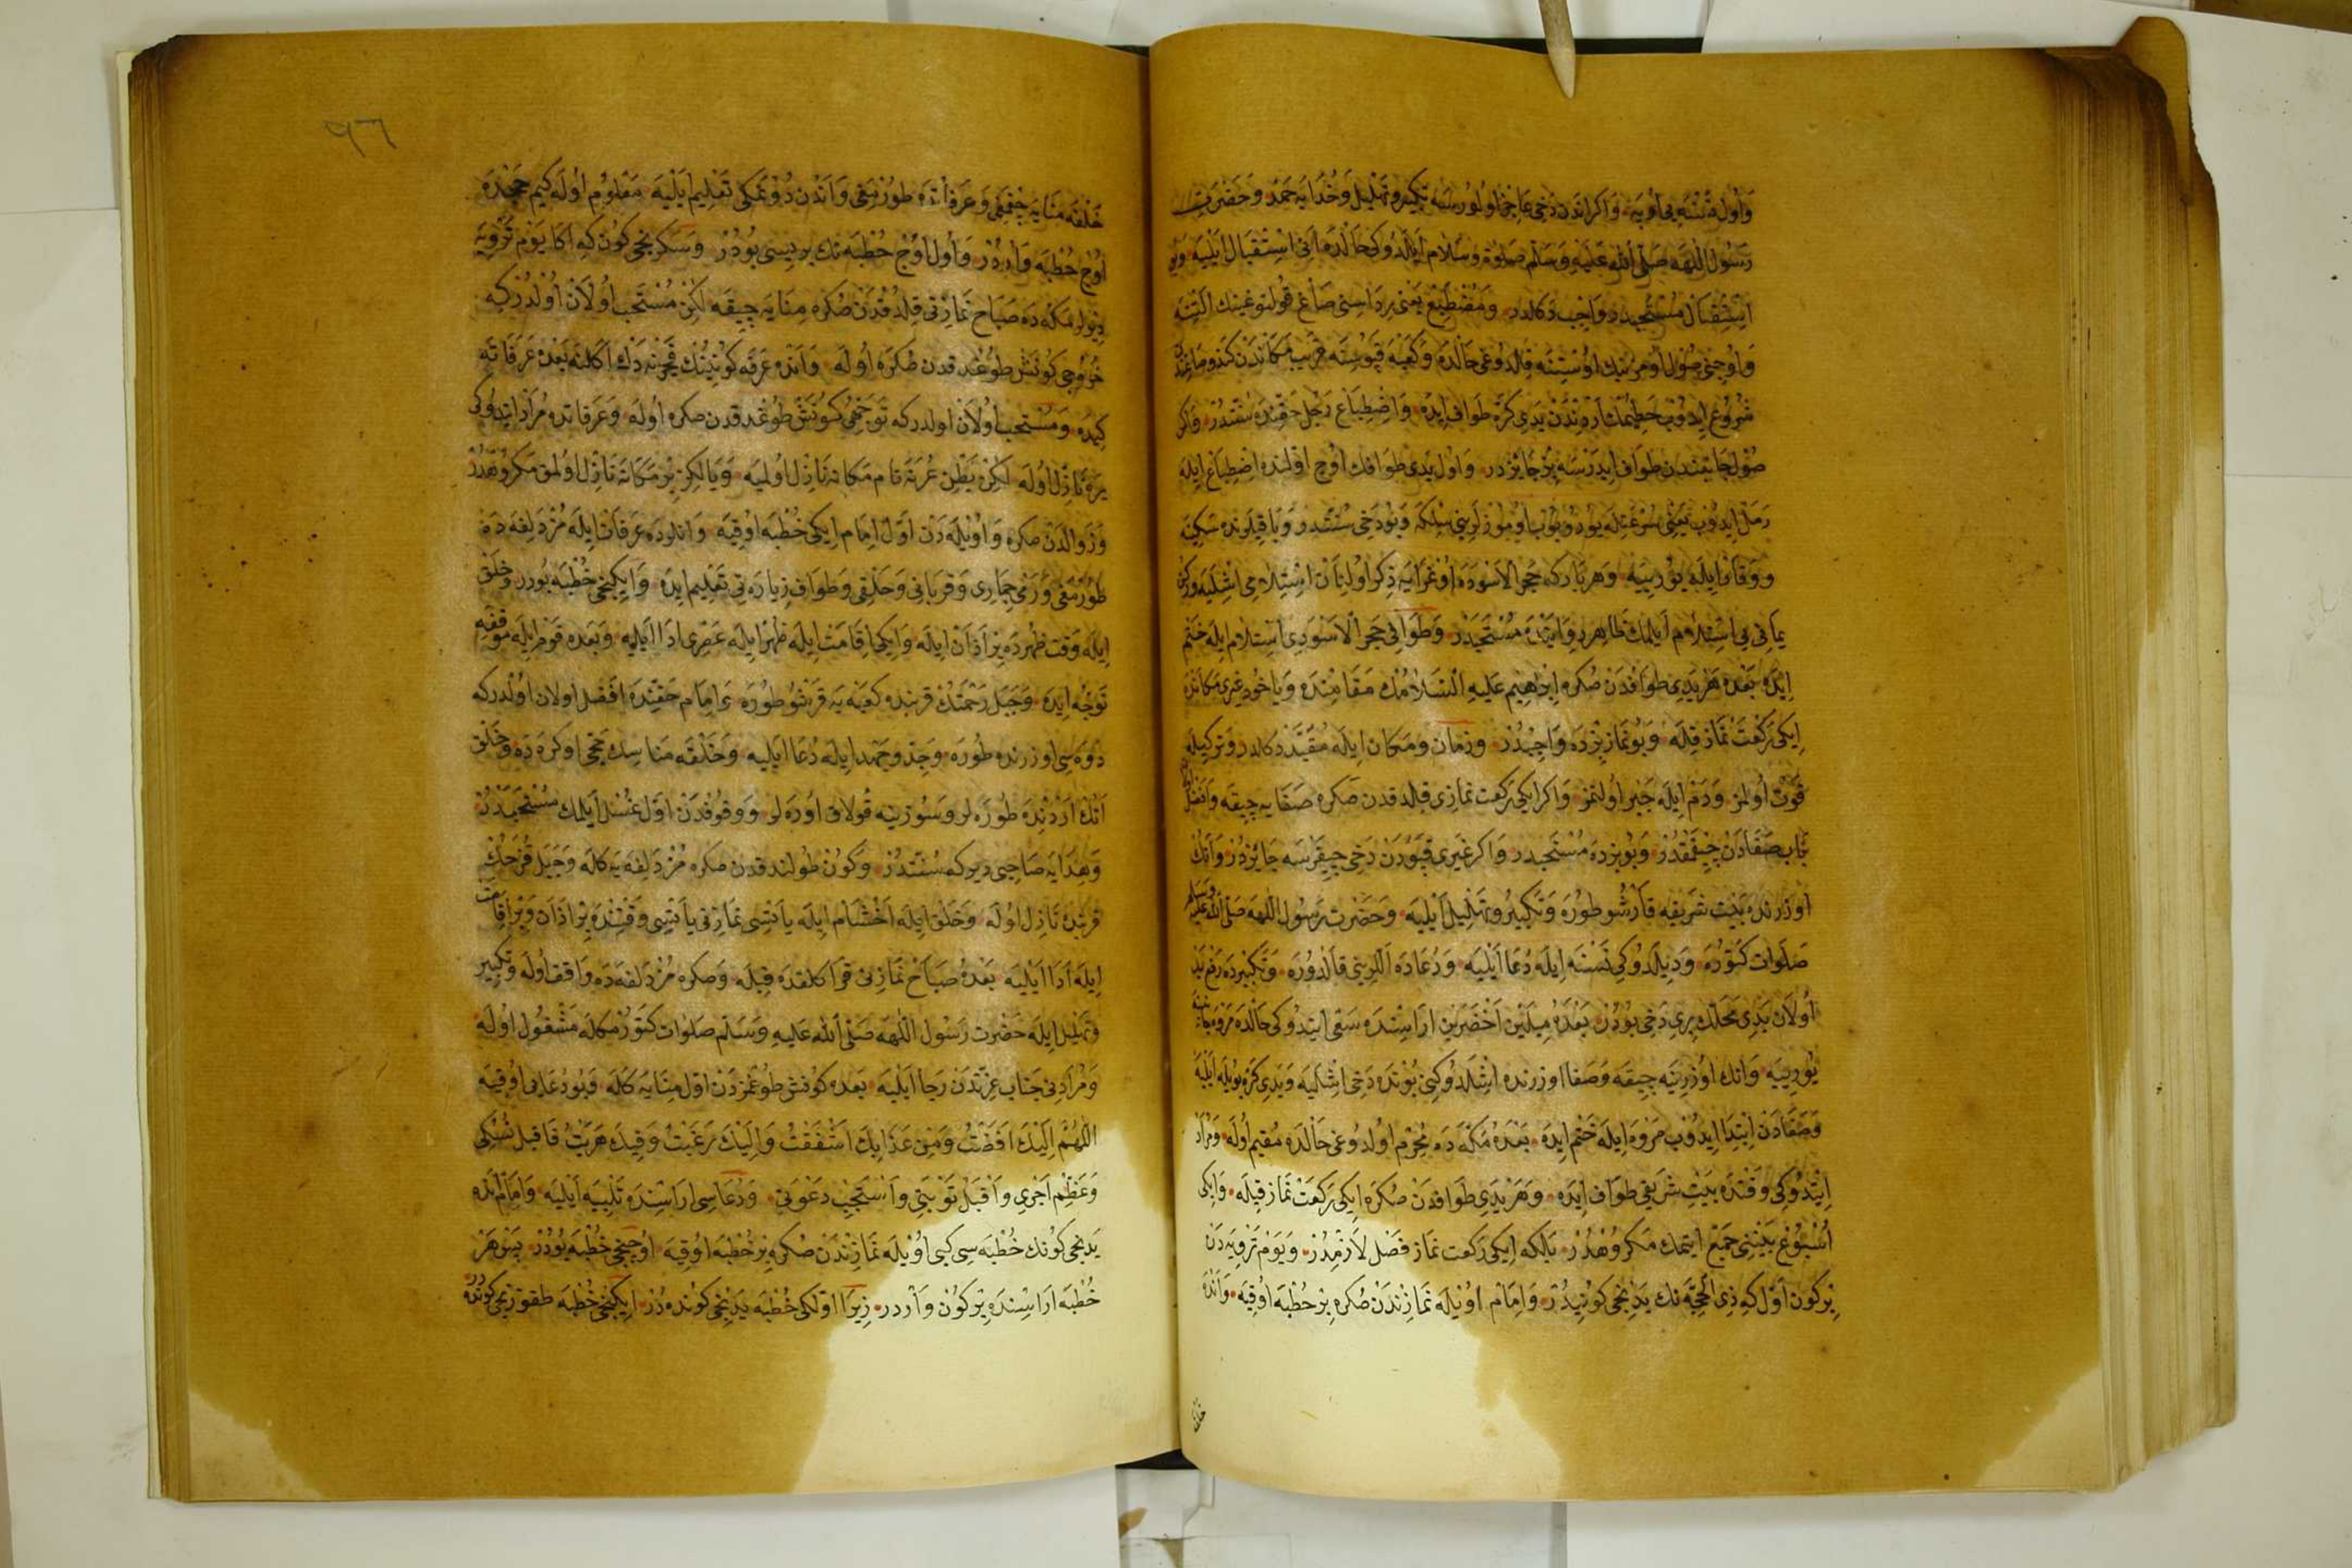 وَاُول نَسْنَه يِى اُوپَه وَاكر اندَن دَخِى عَاجِز اولُورسَه تكبير و تهليل وَخُدَايَه حَمد وَحَضْرَتِ
رَسُول اللّٰه صَلَّى الله عَلَيْهِ وَسَلّم صَلوة وسَلام ايلَدُوكى حَالْدَه انى اسْتِقْبَال ايليَه وَبو
اسْتِقْبَال مُسْتَحبدر وَاجِب دَكلدر وَمُضْطَبِع يَعْنى ردَاسنى صَاغ قولتوغينك التِنه
وَاُوجِنى صُول اُومُزينك اوُسْتِنَه قالدوغى حَالْدَه وَكَعْبَه قپوسِنَه قريب مَكَاندَن كندو صَاغندن
شُرُوع ايدُوب حَطِيمْك اَرْدِنْدَن يَدى كرّه طَوَاف ايدَه وَاضْطِبَاع رَجُل حَقّنِدَه سُنّتدُر وَاكر
صُول جَانبندن طَواف ايدَرْسَه جَايزدر وَاوُل يَدى طَوافك اوُچ اوّلندَه اضْطِبَاع ايلَه
رَمَل ايدُوب يَعْنى سُرْعَتلَه يورُويوب اوُموزلرينى سِلكَه وَبُودَخى سُنّتدر وَبَاقِيلَرنده سَكِينَه
وَوَقَار ايلَه يوُرِييَه وَهَر بَار كه حَجَر الاسْوَدَه اوُغرَايَه ذِكر اولنان اسْتِلامى اشْليَه وَركن
يمَانى يى اسْتِلام ايلمك ظَاهر روَايتده مُسْتَحبدر وَطَوَافى حَجَر الاسْوَدى اسْتِلام ايلَه خَتم
ايدَه بَعْدَه هَر يَدى طوَافدَن صُكره ابْرَاهِيم عَليه السَّلامُك مَقَامِنْدَه وَيَاخُود غيرى مكاندَه
ايكى رَكْعَت نماز قِلَه وَبُو نماز بزدَه وَاجِبدُر وَزمَان ومَكان ايلَه مُقيّد دكلدر وَترك ايلَه
فَوْت اُولمز وَدَم ايلَه جَبر اُولنمز وَاكر ايكى رَكعت نمازى قِلدقدن صَكره صَفَايه چيقَه وَافضل
بَاب صَفَادَن چِقمَقدُر وَبُو بزدَه مُسْتَحبدر وَاكر غَيرى قپُودن دَخى چِيقَرسَه جَايزدُر وَانك
اوُزرنده بَيْت شريفَه قارشُو طُورَه وَتكبير وتهليل ايليَه وَحَضْرت رَسُول اللّٰه صَلى الله عليه وسلم
صَلَوات كتُورَه وَديلدوكى نَسْنَه ايلَه دُعَا ايليَه وَدُعَادَه اللرينى قالدُورَه وَتكبيردَه رَفع يَد
اُولان يدى مَحَلك برى دَخى بُودر بَعْدَه مِيلَيْن اَخْضَرَيْن اراسِندَه سَعْى ايتدُوكى حَالْدَه مَروَه جانبنه
يوُرِييَه وَانك اوُزرِينه چيقَه وَصَفَا اوزرنده اشْلَدُوكنى بُونْدَه دَخى اشْليَه وَيَدى كرّه بويله ايليَه
وَصَفَادَن ابْتدَا ايدُوب مَروَه ايلَه خَتم ايدَه بَعْدَه مَكّه دَه مُحْرِم اولدُوغى حَالْدَه مُقيم اولَه وَمُرَاد
ايتدُوكى وَقتدَه بَيْتِ شَريفى طوَاف ايدَه وَهَر يَدى طَوَافدن صُكره ايكى رَكعَت نماز قِيلَه وَايكى
اُسْبُوع بَيْنِنى جَمْع ايتمك مَكرُوهدُر بَلكه ايكى رَكعت نماز فَصْل لازمدُر وَيَوم تَرْويَه دَن
بِركون اوّل كه ذى الحجّه نك يدنجى كونيدر وَامَام اوُيلَه نمازندَن صُكره بر خُطبَه اوُقيَه وَاندَه
خلقه
٩٦
خَلقَه منَايَه چِقمَغى وَعَرفَاتدَه طُورْمَغى وَاندن دُونمَكى تَعْليم ايليَه مَعْلُوم اولَه كيم حجدَه
اُوچ خُطبَه وَاردُر وَاول اوُچ خُطبَه نك بريسى بُودُر وَسَكزنجى كون كه اكَا يَوم تَرْويَه
ديرلر مَكّه دَه صَبَاح نمازنى قِلدقدَن صُكره مِنَايه چِيقَه لكن مُسْتَحب اوُلان اولدُركه
خُرُوجى كونش طوُغدقدن صُكره اوُلَه وَانده عَرفَه كونينك فجرينه دَك اكلنه بَعْده عَرَفاتَه
كيدَه وَمُسْتحب اوُلان اولدركه تَوَجّهى كونش طوُغدقدن صكره اوُلَه وَعَرفاتده مُرَاد ايتدوكى
يرَه نازل اوُلَه لكن بَطْن عُرَنَه نام مَكانه نازل اولميَه وَيَالكز بر مكانَه نازل اولمق مَكرُوهدُر
وَزَوالدَن صكره وَاوُيلَه دَن اوّل امَام ايكى خُطْبَه اوقيَه وَانلرده عَرفات ايلَه مُزدَلِفَه دَه
طورمَغى وَرَمْى جمَارى وَقربانى وَحَلقى وَطَواف زيارَه تى تَعْليم ايدَه وَايكنجى خُطبَه بُودر وخلق
ايلَه وَقت ظهردَه بر اذَان ايلَه وَايكى اقَامَت ايلَه ظهر ايلَه عَصرى ادَا ايليه وَبَعده قوم ايلَه موقفه
تَوجّه ايدَه وَجَبَل رَحْمَتك قربنده كعبَه يَه قرشُو طورَه امَام حَقّندَه افضَل اولان اولدركه
دَوَه سى اوزرنده طُورَه وَجِد و جَهد ايلَه دُعَا ايليه وَخَلقَه مناسك حَجى اوكرَدَه وَخَلق
انك اَردِنده طُورَه لر وَسُوزينه قُولاق اوُرَه لر وَوقُوفدَن اوّل غسْل ايلمك مُسْتَحبدُر
وَهدَايَه صَاحبى ديركه سُنّتدُر وَكون طولندقدن صكره مُزدَلفَه يَه كَلَه وَجَبَل قُزَحك
قربندَه نازل اوُلَه وَخَلق ايلَه اخشَام ايلَه ياتسى نمازنى ياتسى وَقتِندَه بر اذان وَبر اقامت
ايلَه اَدَا ايليَه بَعْدَه صبَاح نمازنى قرَاكلقدَه قِيلَه وَصكره مُزدَلفَه دَه وَاقف اوُلَه وَتكبير
وتهليل ايلَه حَضْرت رَسُول اللّٰه صَلى الله عليه وسَلّم صَلوات كتُورْمكلَه مَشْغُول اولَه
وَمُرَادنى جنَاب عِزّتدن رَجَا ايليَه بَعده كونش طوُغمزدَن اوّل مِنَايَه كَلَه وَبُو دُعَايى اوُقيَه
اللّٰهُمَّ اِلَيْكَ اَفَضْتُ وَمِن عَذَابِكَ اَشْفَقْتُ وَاِلَيْكَ رَغِبْتُ وَفِيكَ هَرَبْتُ فَاقبل نُسُكى
وَعَظِّم اَجْرى وَاقبَل تَوْبَتى وَاسْتَجِب دَعْوَتى وَدُعَاسى ارَاسِندَه تَلبِيَه ايليَه وَامَام انده
يَدنجى كونك خُطبَه سى كبى اوُيلَه نمازندن صُكره بر خُطبَه اوُقيَه اوُچنجى خُطبَه بُودُر پس هَر
خُطبَه ارَاسِندَه بِركون وَاردر زيرَا اوّلكى خُطبَه يَدنجى كونده دُر ايكنجى خُطبَه طقوزنجى كونده در